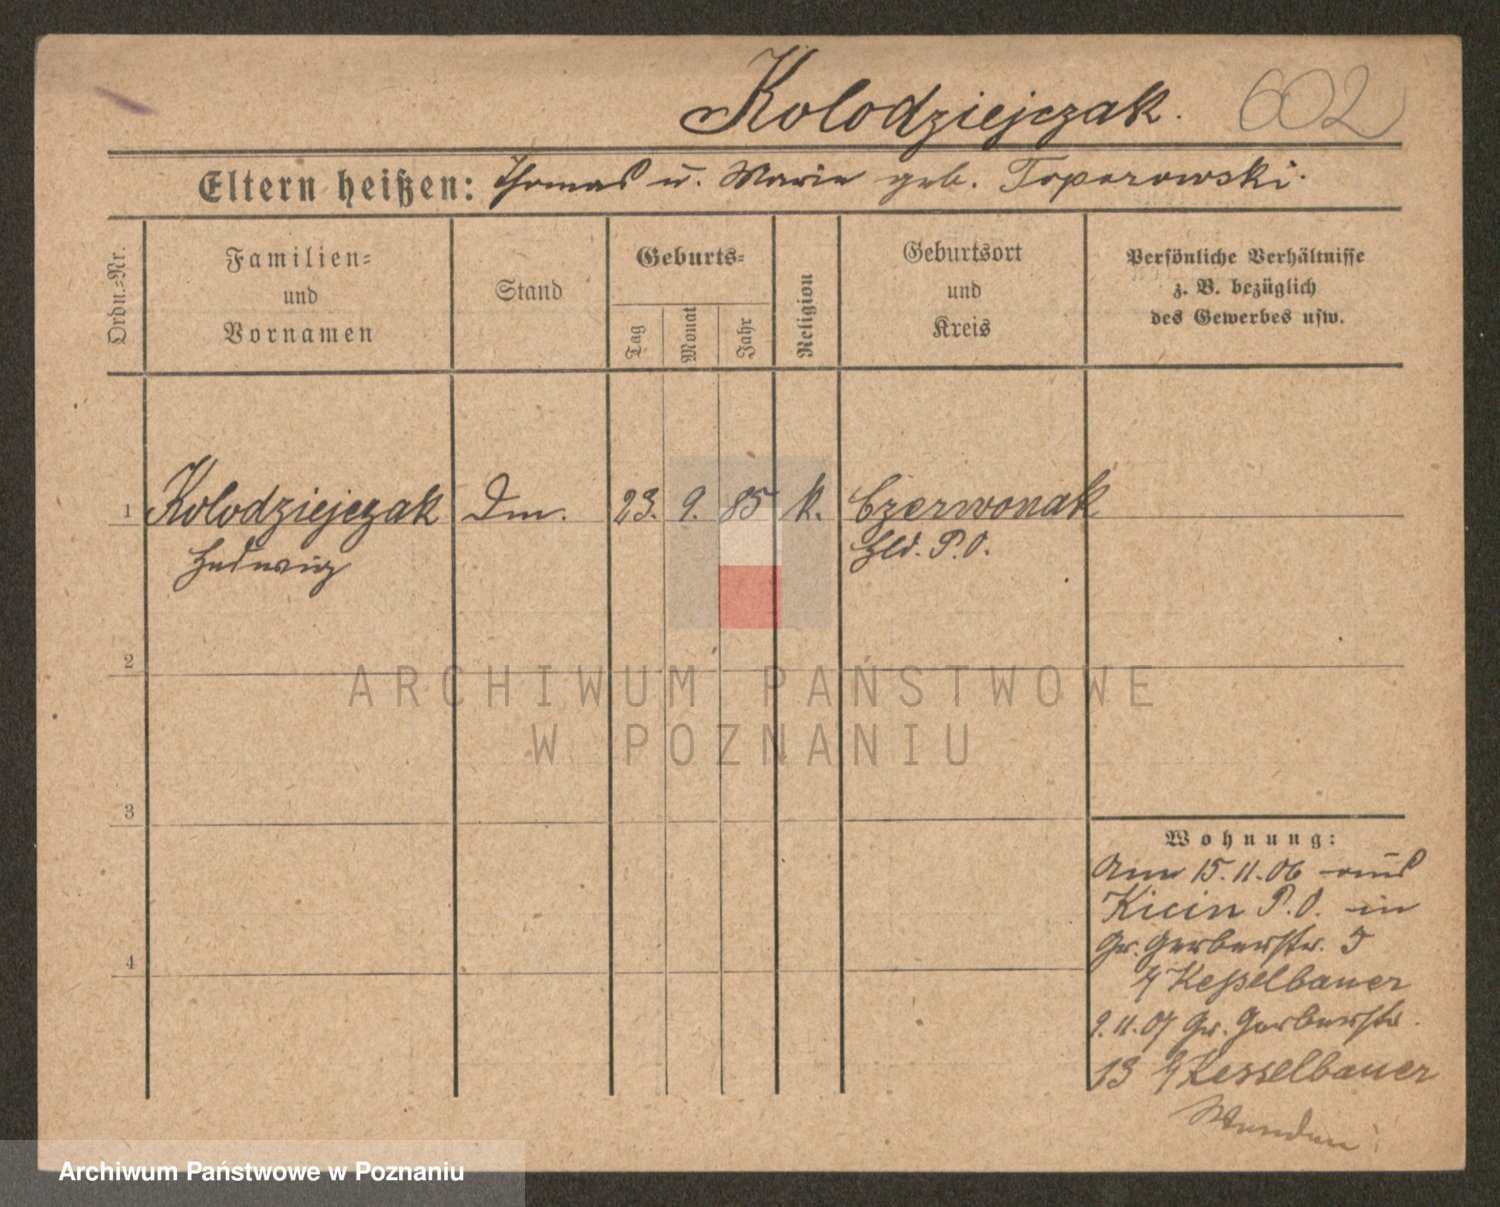 Kolodziejczak. 602
Eltern heißen: Thomas u. Marie geb. Toporowski.
Ordn.-Nr.
Familien-
und
Vornamen
Stand
Geburts-
Tag
Monat
Jahr
Religion
Geburtsort
und
Kreis
Persönliche Verhältnisse
z. B. bezüglich
des Gewerbes usw.
1 Kolodziejczak Dm. 23. 9. 85 k. Czerwonak
Hedwig
P.O.
2
3
4
Wohnung:
Am 15.11.06 aus
Kicin P.O. in
Gr. Gerberstr. 5
b/ Keßelbauer
9.11.07 Gr. Gerberstr.
13 b/ Kesselbauer
Wenden!
ARCHIWUM PAŃSTWOWE
W POZNANIU
Archiwum Państwowe w Poznaniu